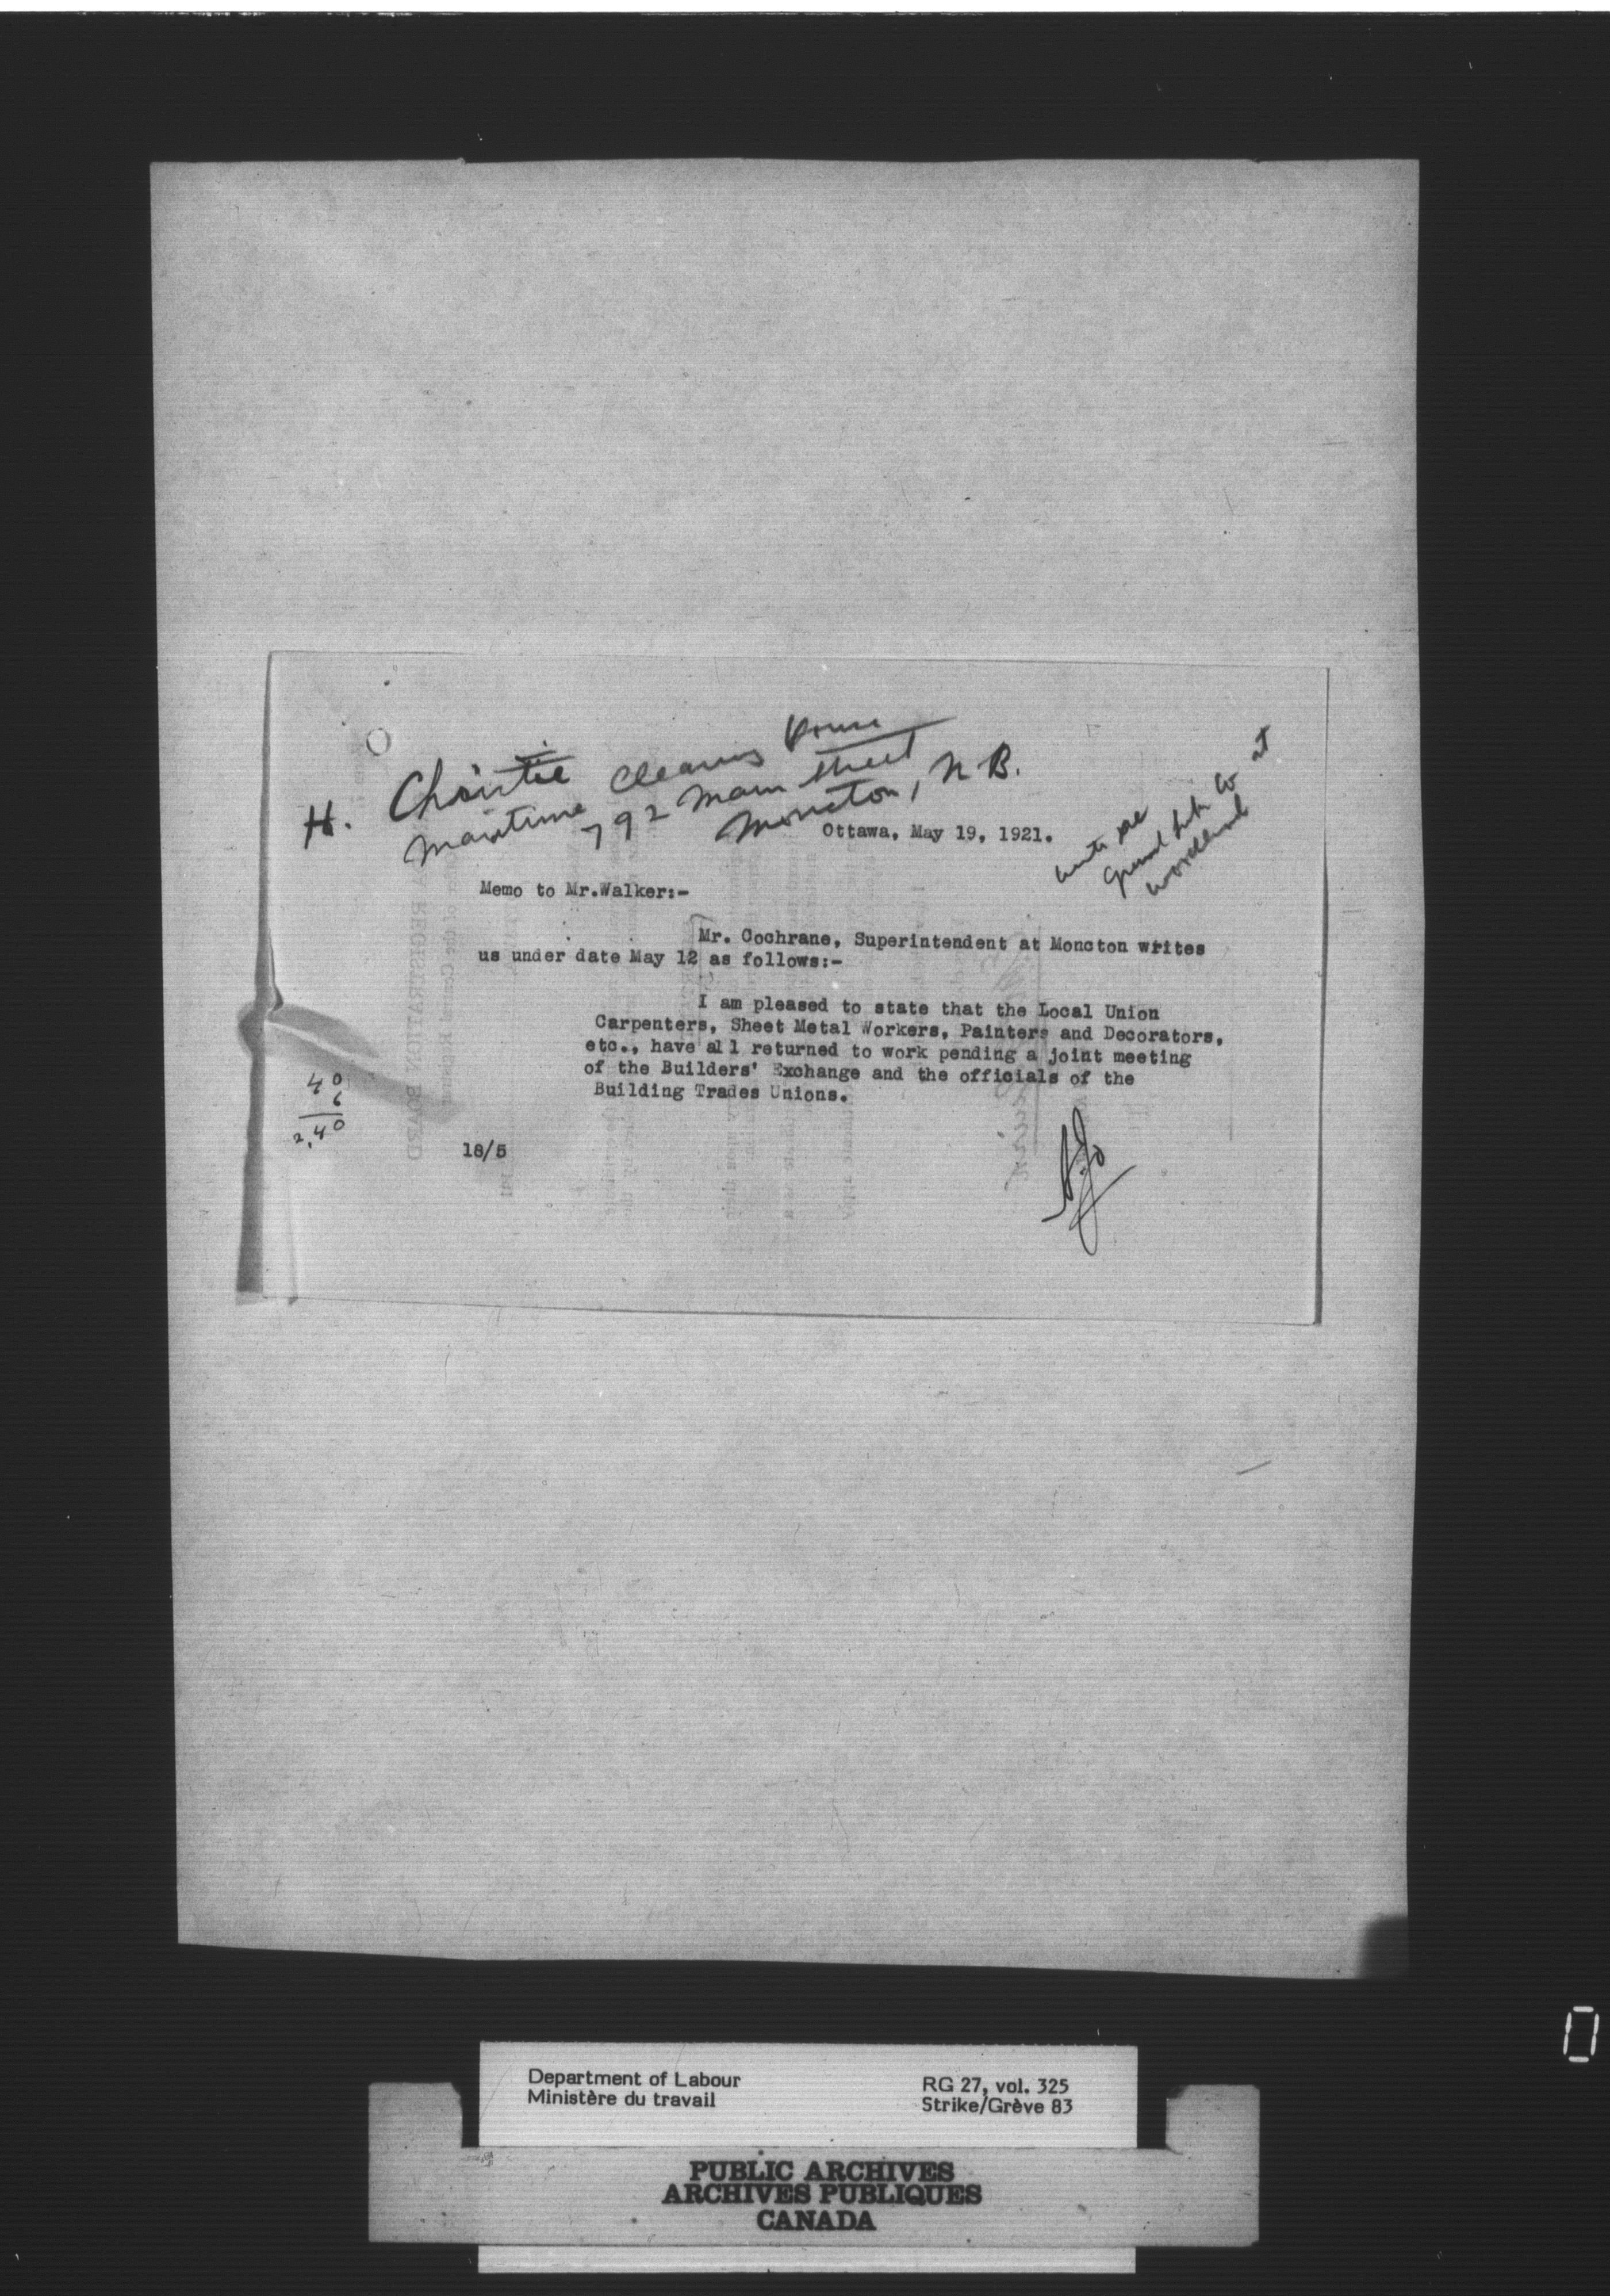 H. Christie
Maritime Cleaning
792 Main Street
Moncton, N.B.
at
Ottawa, May 19, 1921.
Memo to Mr.Walker:-
Mr. Cochrane, Superintendent at Moncton writes
us under date May 12 as follows:-
I am pleased to state that the Local Union
Carpenters, Sheet Metal Workers, Painters and Decorators,
etc., have all returned to work pending a joint meeting
of the Builders' Exchange and the officials of the
Building Trades Unions.
40
6
2,40
18/5
Department of Labour
Ministère du travail
RG 27, vol. 325
Strike/Grève 83
PUBLIC ARCHIVES
ARCHIVES PUBLIQUES
CANADA